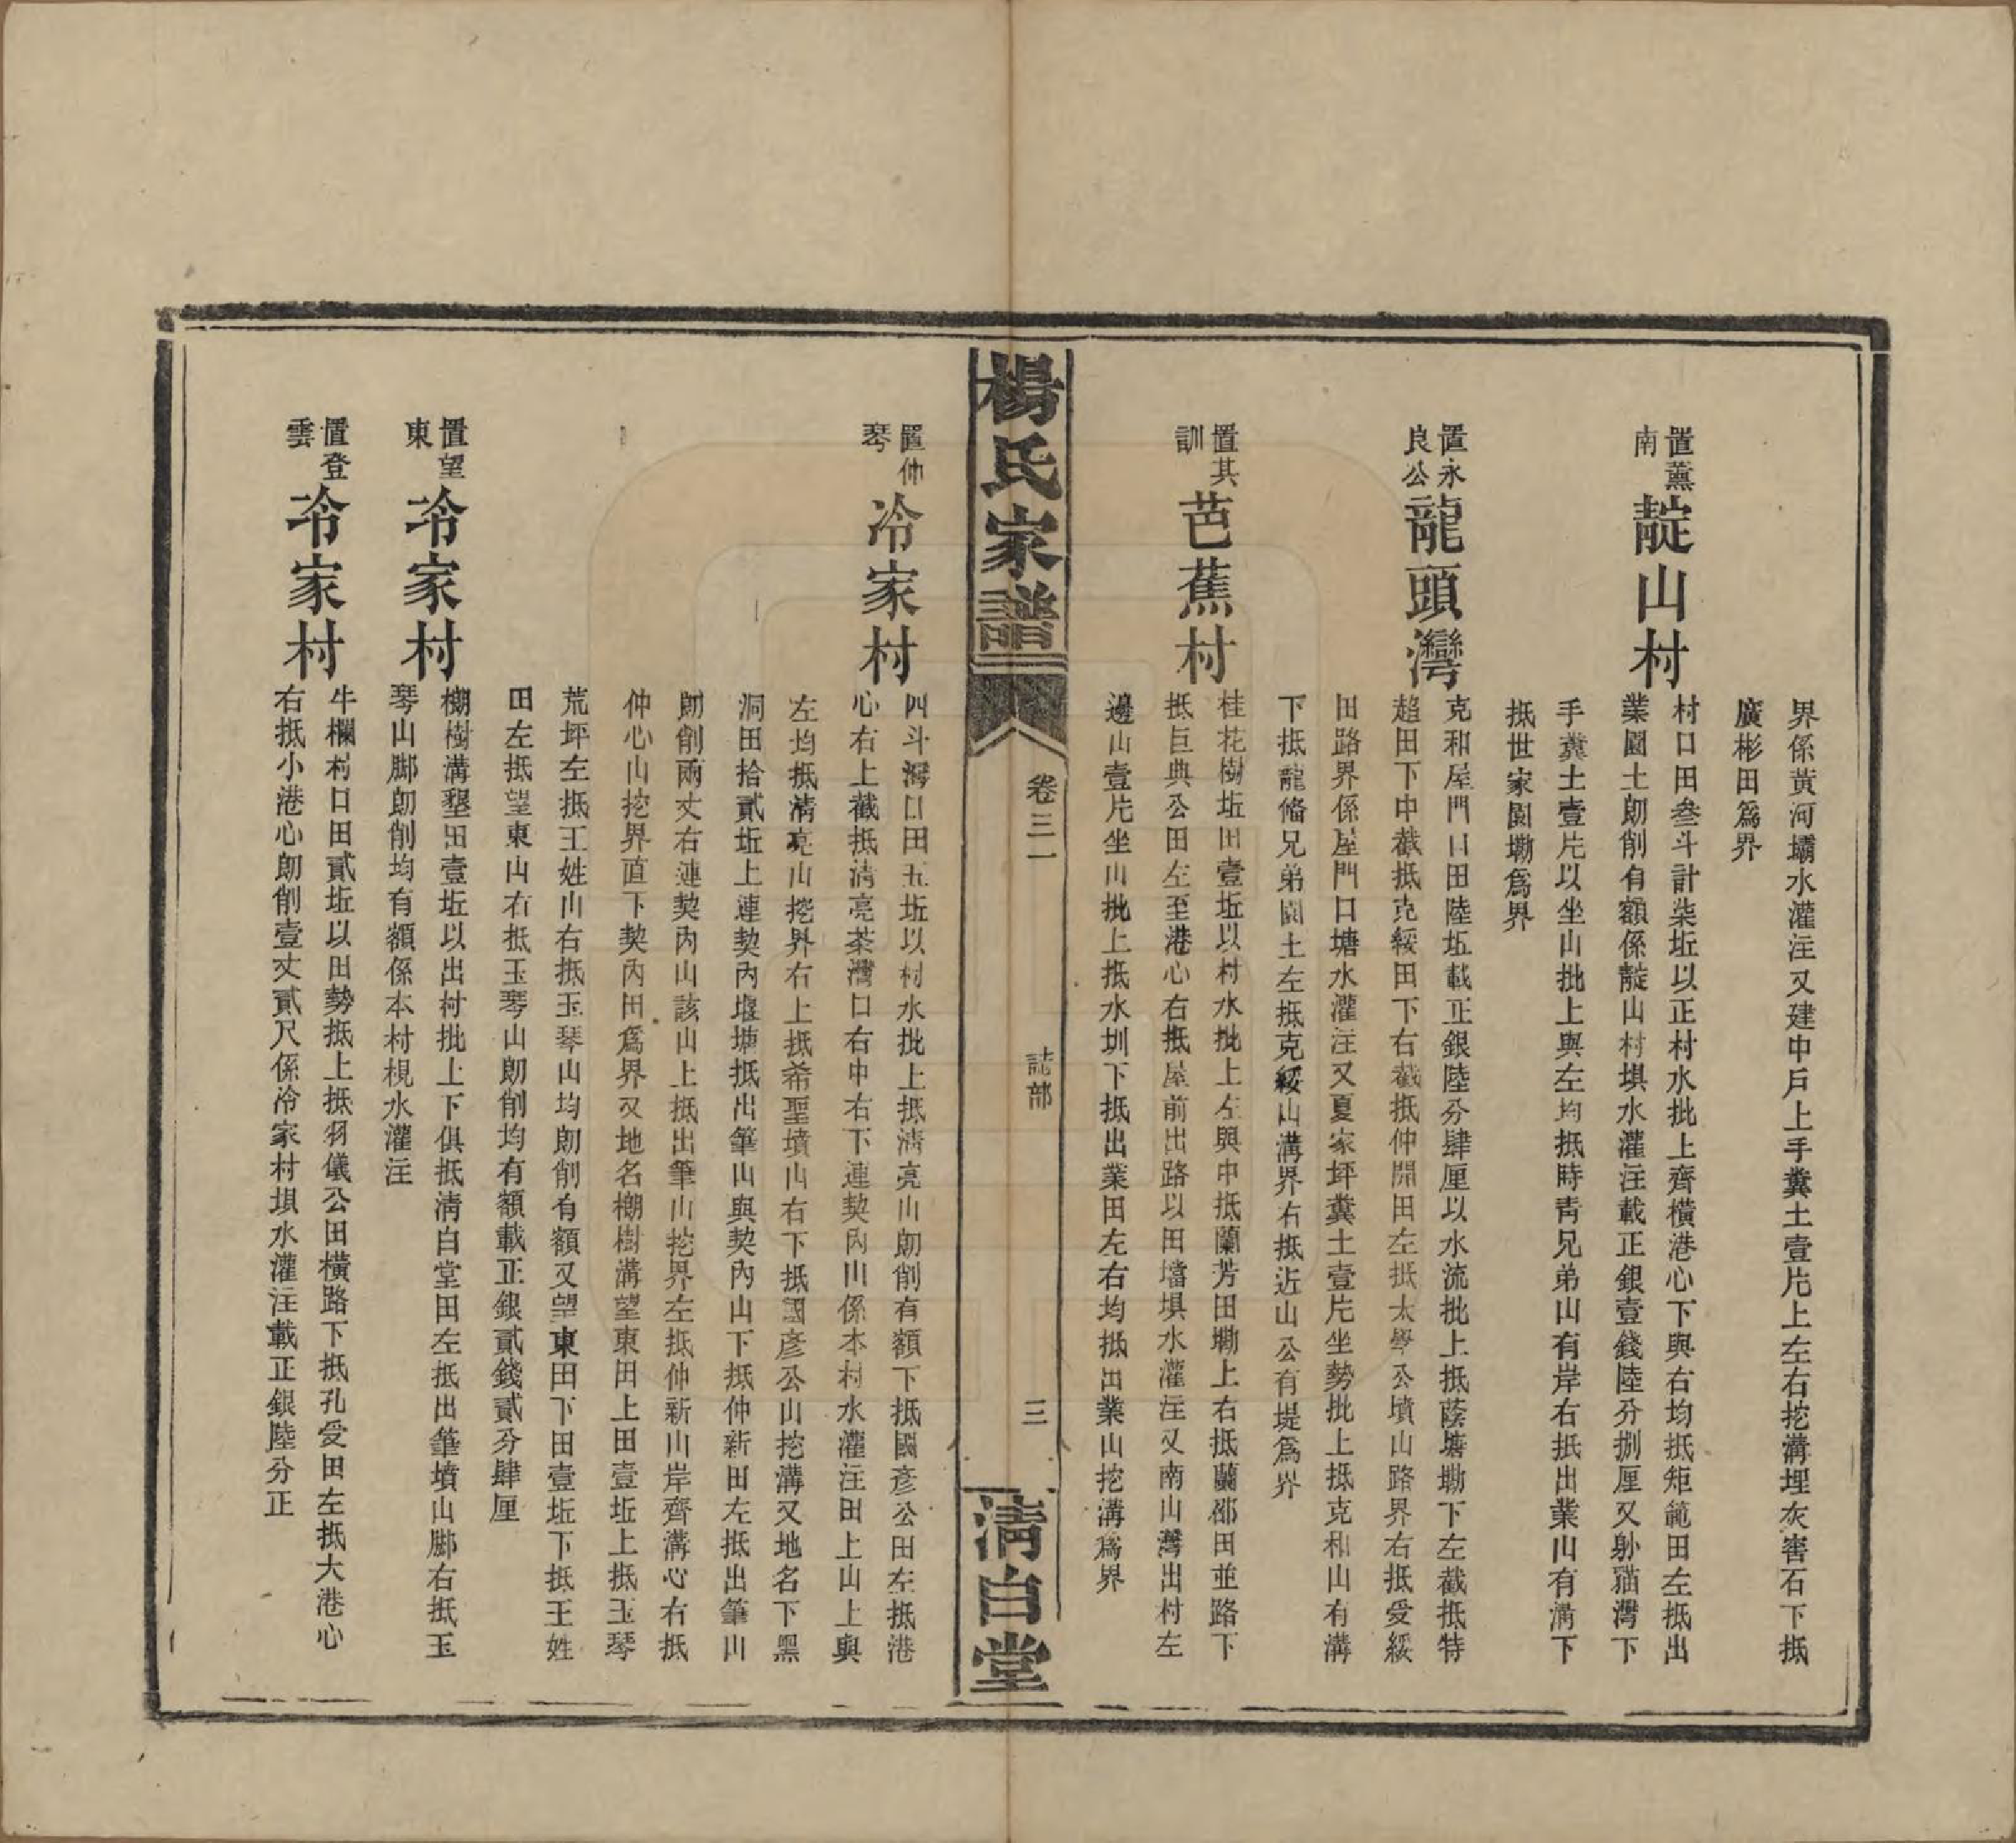 界係黃河壩水灌注又建中戶上手糞土壹片上左右挖溝埋灰窖石下抵
廣彬田爲界
置薰南
靛山村
村口田叁斗計柒坵以正村水批上齊橫港心下與右均抵矩範田左抵出
業園土朗削有額係靛山村埧水灌注載正銀壹錢陸分捌厘又躲猫灣下
手糞土壹片以坐山批上與左均抵時靑兄弟山有岸右抵出業山有溝下
抵世家園墈爲界
置永良公
龍頭灣
克和屋門口田陸坵載正銀陸分肆厘以水流批上抵蔭塘墈下左截抵特
超田下中截抵克綏田下右截抵仲開田左抵太學公墳山路界右抵受綏
田路界係屋門口塘水灌注又夏家坪糞土壹片坐勢批上抵克和山有溝
下抵龍脩兄弟園土左抵克綏山溝界右抵近山公有堤爲界
置其訓
芭蕉村
桂花樹坵田壹坵以村水批上左與中抵蘭芳田墈上右抵蘭邵田並路下
抵巨典公田左至港心右抵屋前出路以田壋埧水灌注又南山灣出村左
邊山壹片坐山批上抵水圳下抵出業田左右均抵出業山挖溝爲界
楊氏家譜
卷三一
誌部
三
淸白堂
置仲琴
冷家村
四斗灣口田五坵以村水批上抵淸亮山朗削有額下抵國彥公田左抵港
心右上截抵淸亮茶灣口右中右下連契內山係本村水灌注田上山上與
左均抵淸亮山挖界右上抵希聖墳山右下抵國彥公山挖溝又地名下黑
洞田拾貳坵上連契內堰塘抵出筆山與契內山下抵仲新田左抵出筆山
朗削兩丈右連契內山該山上抵出筆山挖界左抵仲新山岸齊溝心右抵
仲心山挖界直下契內田爲界又地名棚樹溝望東田上田壹坵上抵玉琴
荒坪左抵王姓山右抵玉琴山均朗削有額又望東田下田壹坵下抵王姓
田左抵望東山右抵玉琴山朗削均有額載正銀貳錢貳分肆厘
置望東
冷家村
棚樹溝墾田壹坵以出村批上下俱抵淸白堂田左抵出筆墳山脚右抵玉
琴山脚朗削均有額係本村梘水灌注
置登雲
冷家村
牛欄村口田貳坵以田勢抵上抵羽儀公田橫路下抵孔受田左抵大港心
右抵小港心朗削壹丈貳尺係冷家村埧水灌注載正銀陸分正